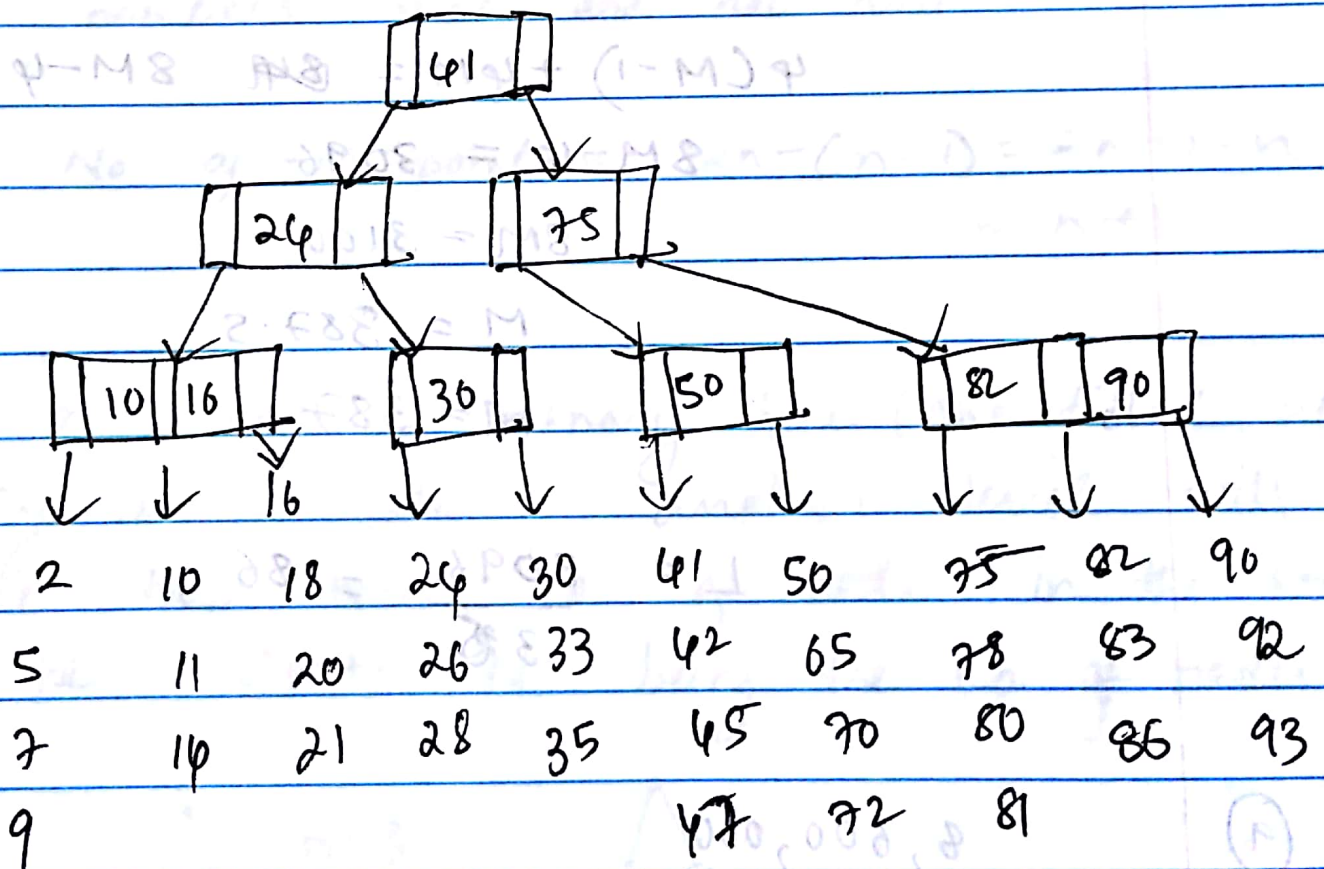 41
24 75
10 16 30 50 82 90
16
2 10 18 24 30 41 50 75 82 90
5 11 20 26 33 42 65 78 83 92
7 14 21 28 35 45 70 80 86 93
9 47 72 81